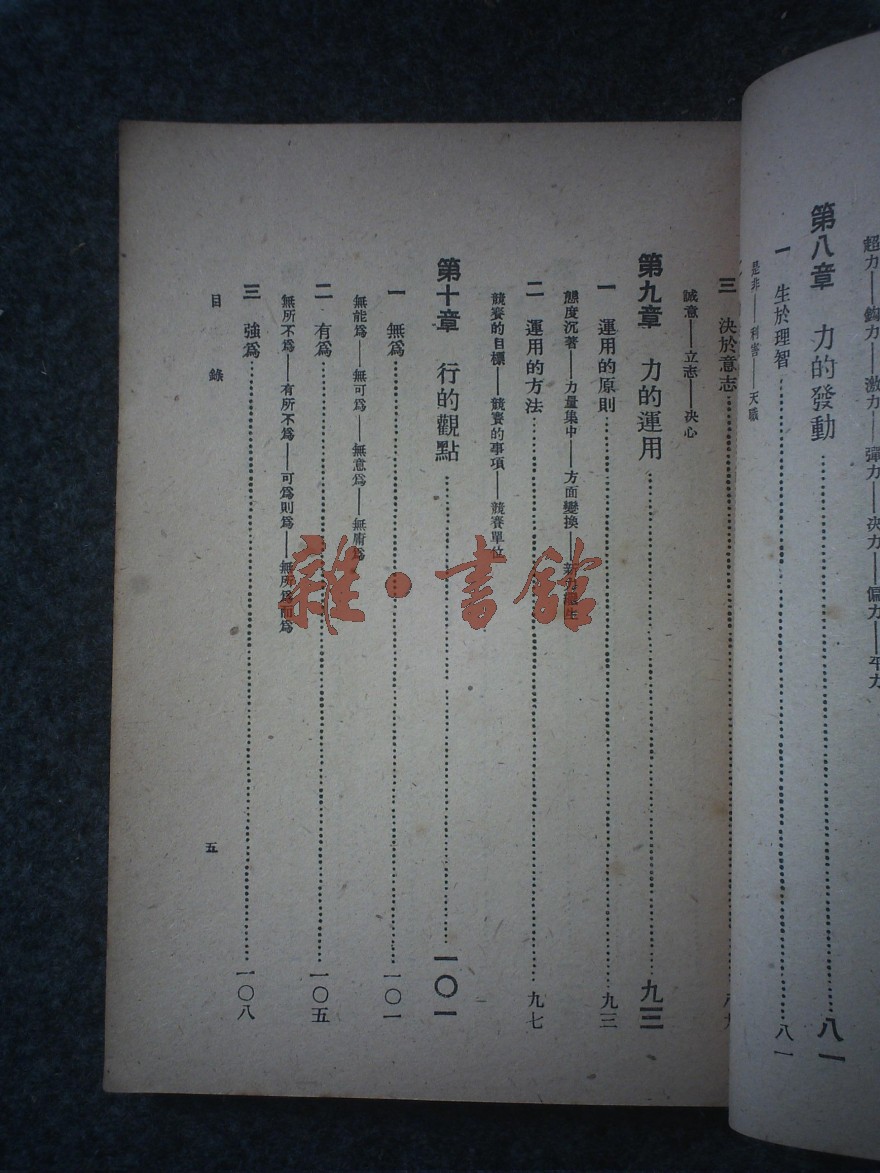 超力——鈎力——激力——彈力——決力——偏力——平力
第八章 力的發動…………八一
一 生於理智…………八一
是非——利害——天職
三 決於意志…………八九
誠意——立志——決心
第九章 力的運用…………九三
一 運用的原則…………九三
態度沉著——力量集中——方面變換——新力
二 運用的方法…………九七
競賽的目標——競賽的事項——競賽單位
第十章 行的觀點…………一〇一
一 無爲…………一〇一
無能爲——無可爲——無意爲——無庸爲
二 有爲…………一〇五
無所不爲——有所不爲——可爲則爲——無所爲而爲
三 強爲…………一〇八
目錄
五
雜·書館